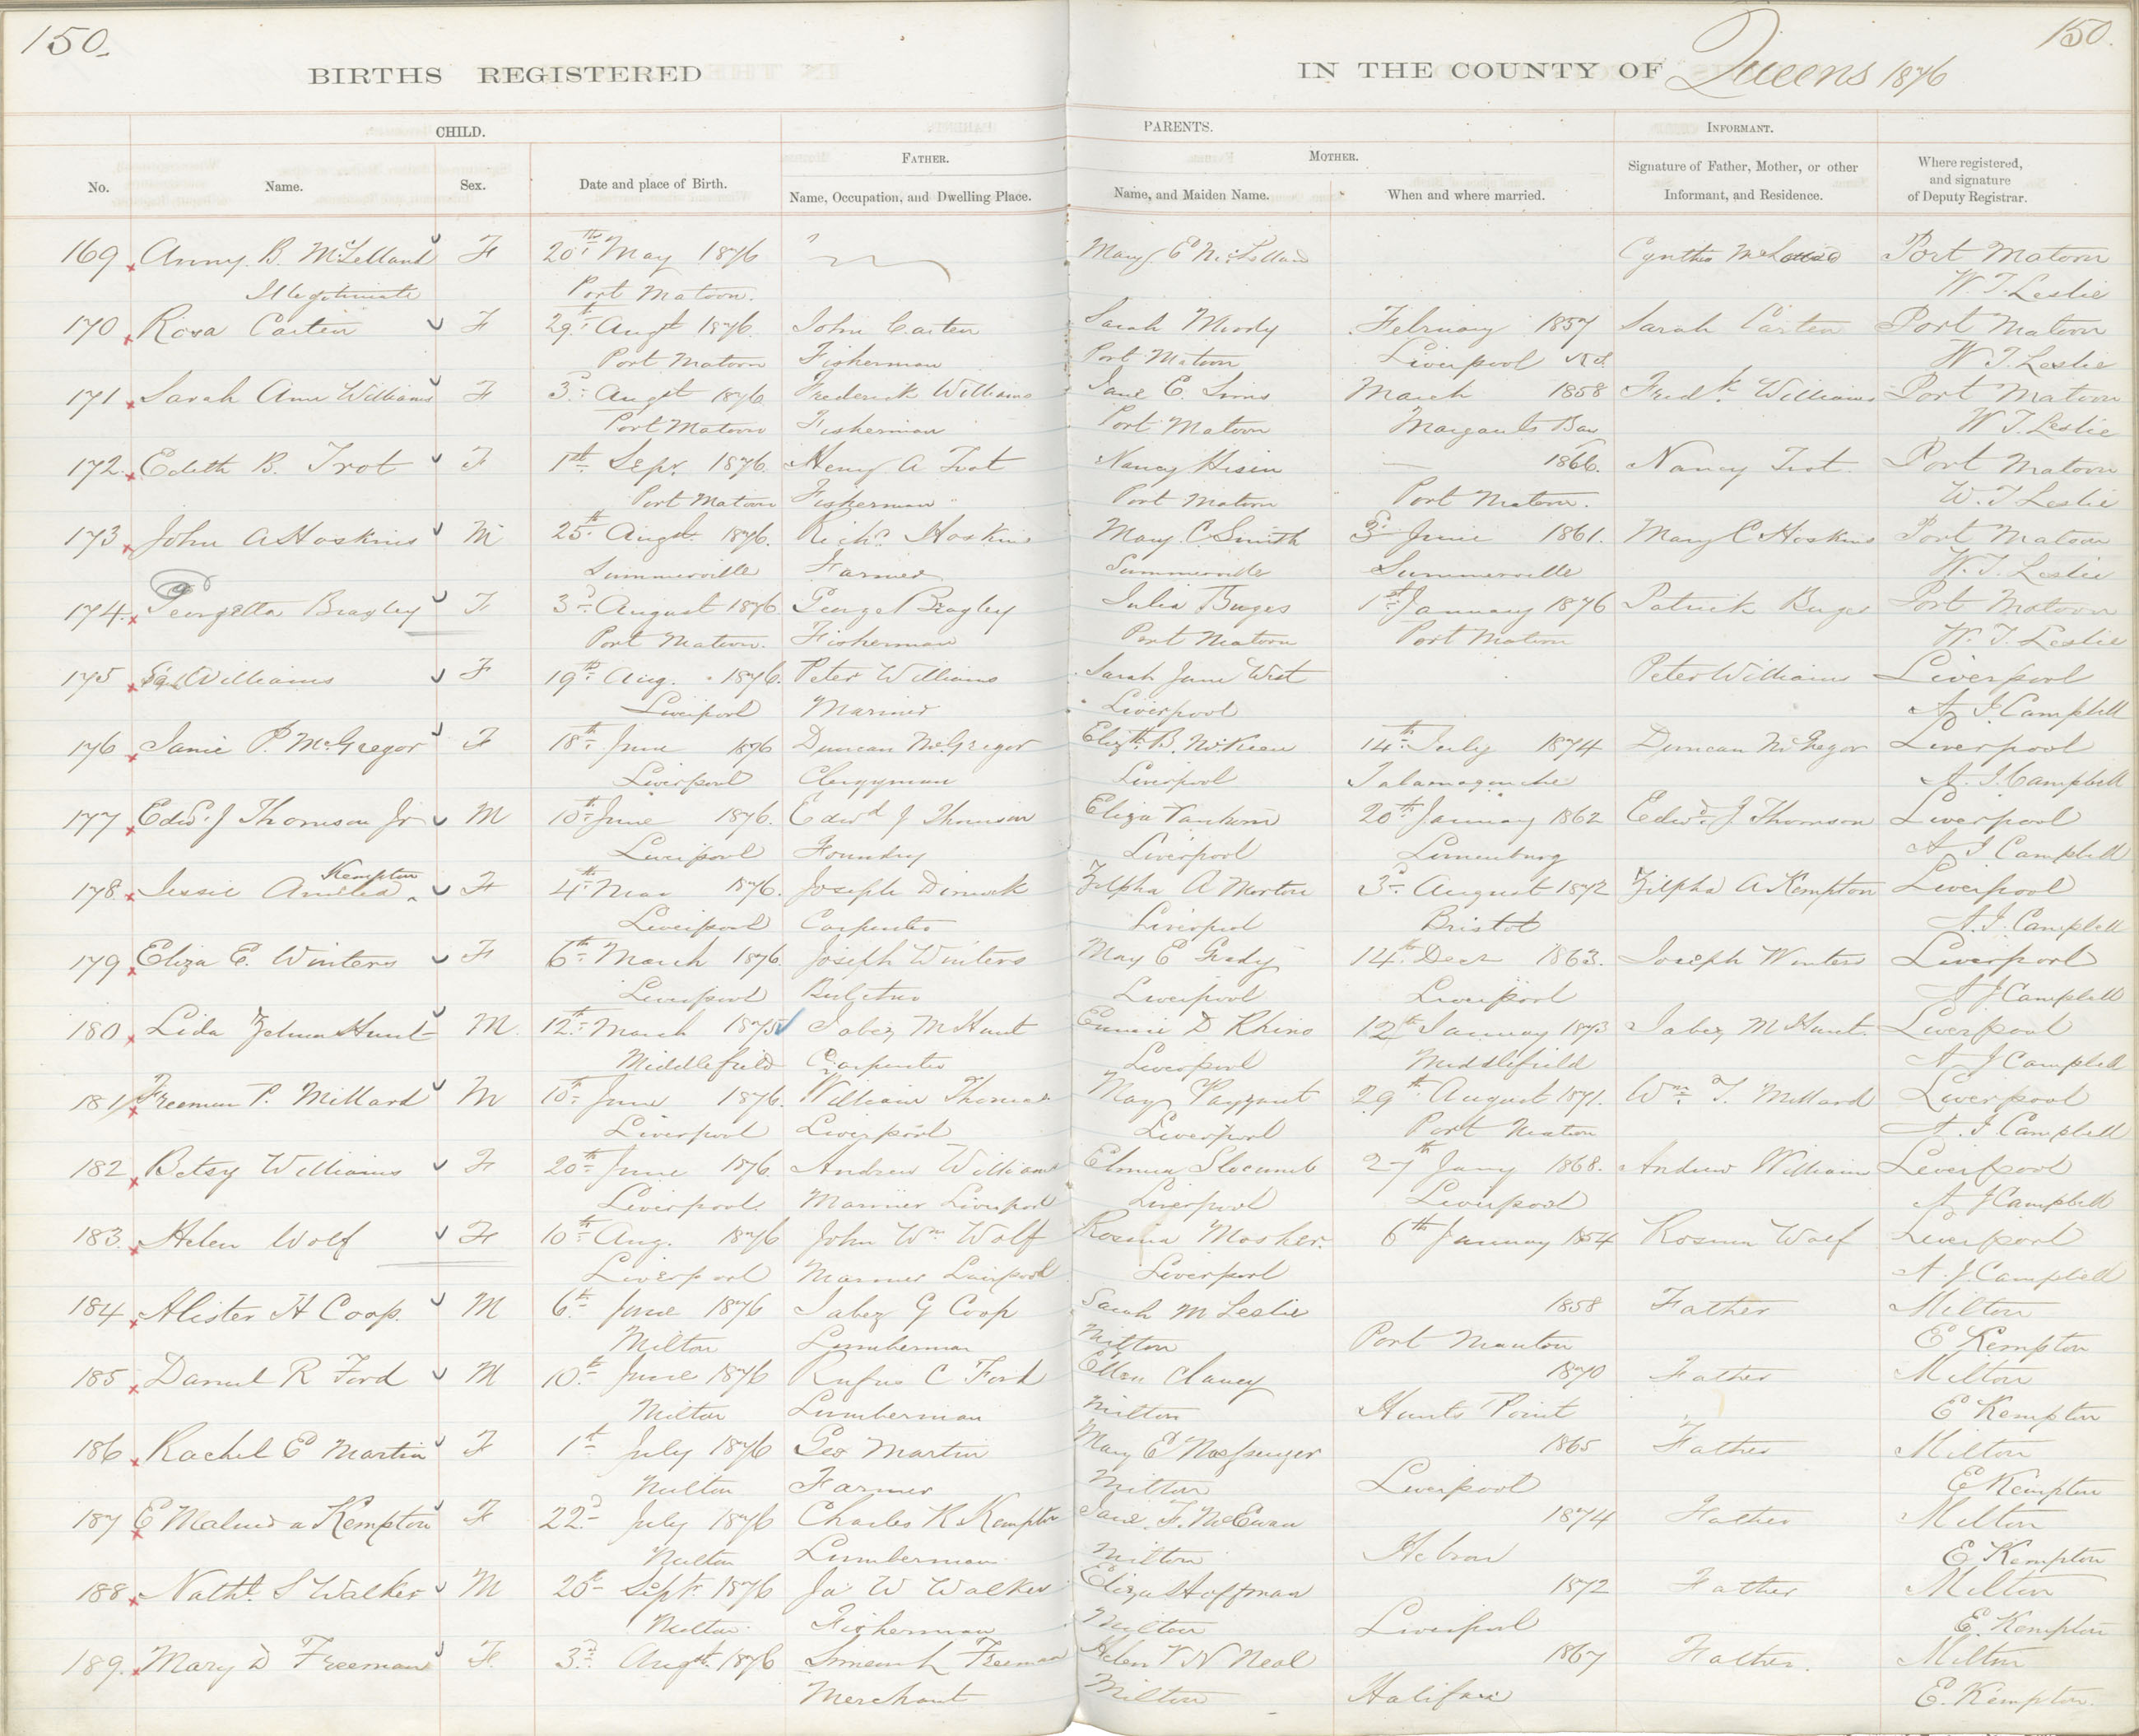 150.
150.
BIRTHS REGISTERED
IN THE COUNTY OF Queens 1876
CHILD.
PARENTS.
INFORMANT.
FATHER.
MOTHER.
No.
Name.
Sex.
Date and place of Birth.
Name, Occupation, and Dwelling Place.
Name, and Maiden Name.
When and where married.
Signature of Father, Mother, or other Informant, and Residence.
Where registered, and signature of Deputy Registrar.
169 Anny. B. McLelland F 20th May 1876 Mary E McLelland Cynthia Port Matoon
Illegitimate Port Matoon. W. T. Leslie
170 Rosa Carten F 29th Augt 1876. John Carten Sarah Moody February 1857 Sarah Carten Port Matoon
Port Matoon Fisherman Port Matoon Liverpool Rd. W T. Leslie
171 Sarah Ann Williams F 3d Augst 1876 Frederick Williams Jane E. Sims March 1858 Fredk Williams Port Matoon
Port Matoon Fisherman Port Matoon Margarets Bay W T. Leslie
172 Edith B. Trot F 1st Sepr. 1876. Henry A Trot Nancy 1866. Nancy Trot. Port Matoon
Port Matoon Fisherman Port Matoon Port Matoon. W. T Leslie
173 John A Hoskins M 25th Augst. 1876. Richd. Hoskins Mary. C. Smith 3d June 1861. Mary C Hoskins Port Matoon
Summerville Farmer Summerville Summerville W. T. Leslie
174. Georgetta Bragley F 3d August 1876 George Bragley Julia Burges 1st January 1876 Patrick Burges Port Matoon
Port Matoon. Fisherman Port Matoon Port Matoon W. T. Leslie
175 Williams F 19th Aug. 1876. Peter Williams Sarah Jane West Peter Williams Liverpool
Liverpool Mariner Liverpool A. J. Campbell
176 Janie P. McGregor F 18th June 1876 Duncan McGregor Elizth B. McKeen 14th July 1874 Duncan McGregor Liverpool
Liverpool Clergyman Liverpool Tatamagouche A. J. Campbell
177 Edwd. J Thomson Jr M 10th June 1876. Edwd J Thomson Eliza Vanhorn 20th January 1862 Edwd. J. Thomson Liverpool
Liverpool Foundry Liverpool Lunenburg A J Campbell
178 Jessie Amelia Kempton F 4th 1876. Joseph Dimock Zilpha A Morton 3d August 1872 Zilpha A Kempton Liverpool
Liverpool Carpenter Liverpool Bristol A. J. Campbell
179 Eliza E. Winters F 6th March 1876. Joseph Winters Mary E Grady 14th Decr 1863. Joseph Winters Liverpool
Liverpool Liverpool Liverpool A J Campbell
180 Lida Zelma Hunt M. 12th March 1875 Jabez M Hunt D Rhino 12th January 1873 Jabez M Hunt. Liverpool
Middlefield Carpenter Liverpool Middlefield A J Campbell
181 Freeman P. Millard M 10th June 1876. William Thomas Mary Payzant 29th August 1871. Wm. T. Millard Liverpool
Liverpool Liverpool Liverpool Port Matoon A. J Campbell
182 Betsy Williams F 20th June 1876. Andrew Williams Elmira Slocumb 27th Jany 1868. Andrew Williams Liverpool
Liverpool. Mariner Liverpool Liverpool Liverpool A J Campbell
183. Helen Wolf F 10th Aug. 1876 John Wm Wolf Rosina Mosher. 6th January 1854 Rosina Wolf Liverpool
Liverpool Mariner Liverpool Liverpool A. J. Campbell
184 Alister H Coop. M 6th June 1876 Jabez G Coop Sarah M Leslie 1858 Father Milton
Milton Lumberman Milton Port Mouton E Kempton
185 Daniel R Ford M 10th June 1876 Rufus C Ford Ellen Clancy 1870 Father Milton
Milton Lumberman Milton Hunts Point E Kempton
186 Rachel E Martin F 1st July 1876 Geo Martin Mary E 1865 Father Milton
Milton Farmer Milton Liverpool E Kempton
187 E Malinda Kempton F 22d July 1876 Charles K Kempton Jane. F. McEwan 1874 Father Milton
Milton Lumberman Milton Hebron E Kempton
188 Nathl. S Walker M 20th Sept. 1876 Ja W Walker Eliza Huffman 1872 Father Milton
Milton Fisherman Milton Liverpool E. Kempton
189. Mary D Freeman F. 3d Augt. 1876 Simeon h Freeman Helen V N Neal 1867 Father. Milton
Merchant Milton Halifax E. Kempton.